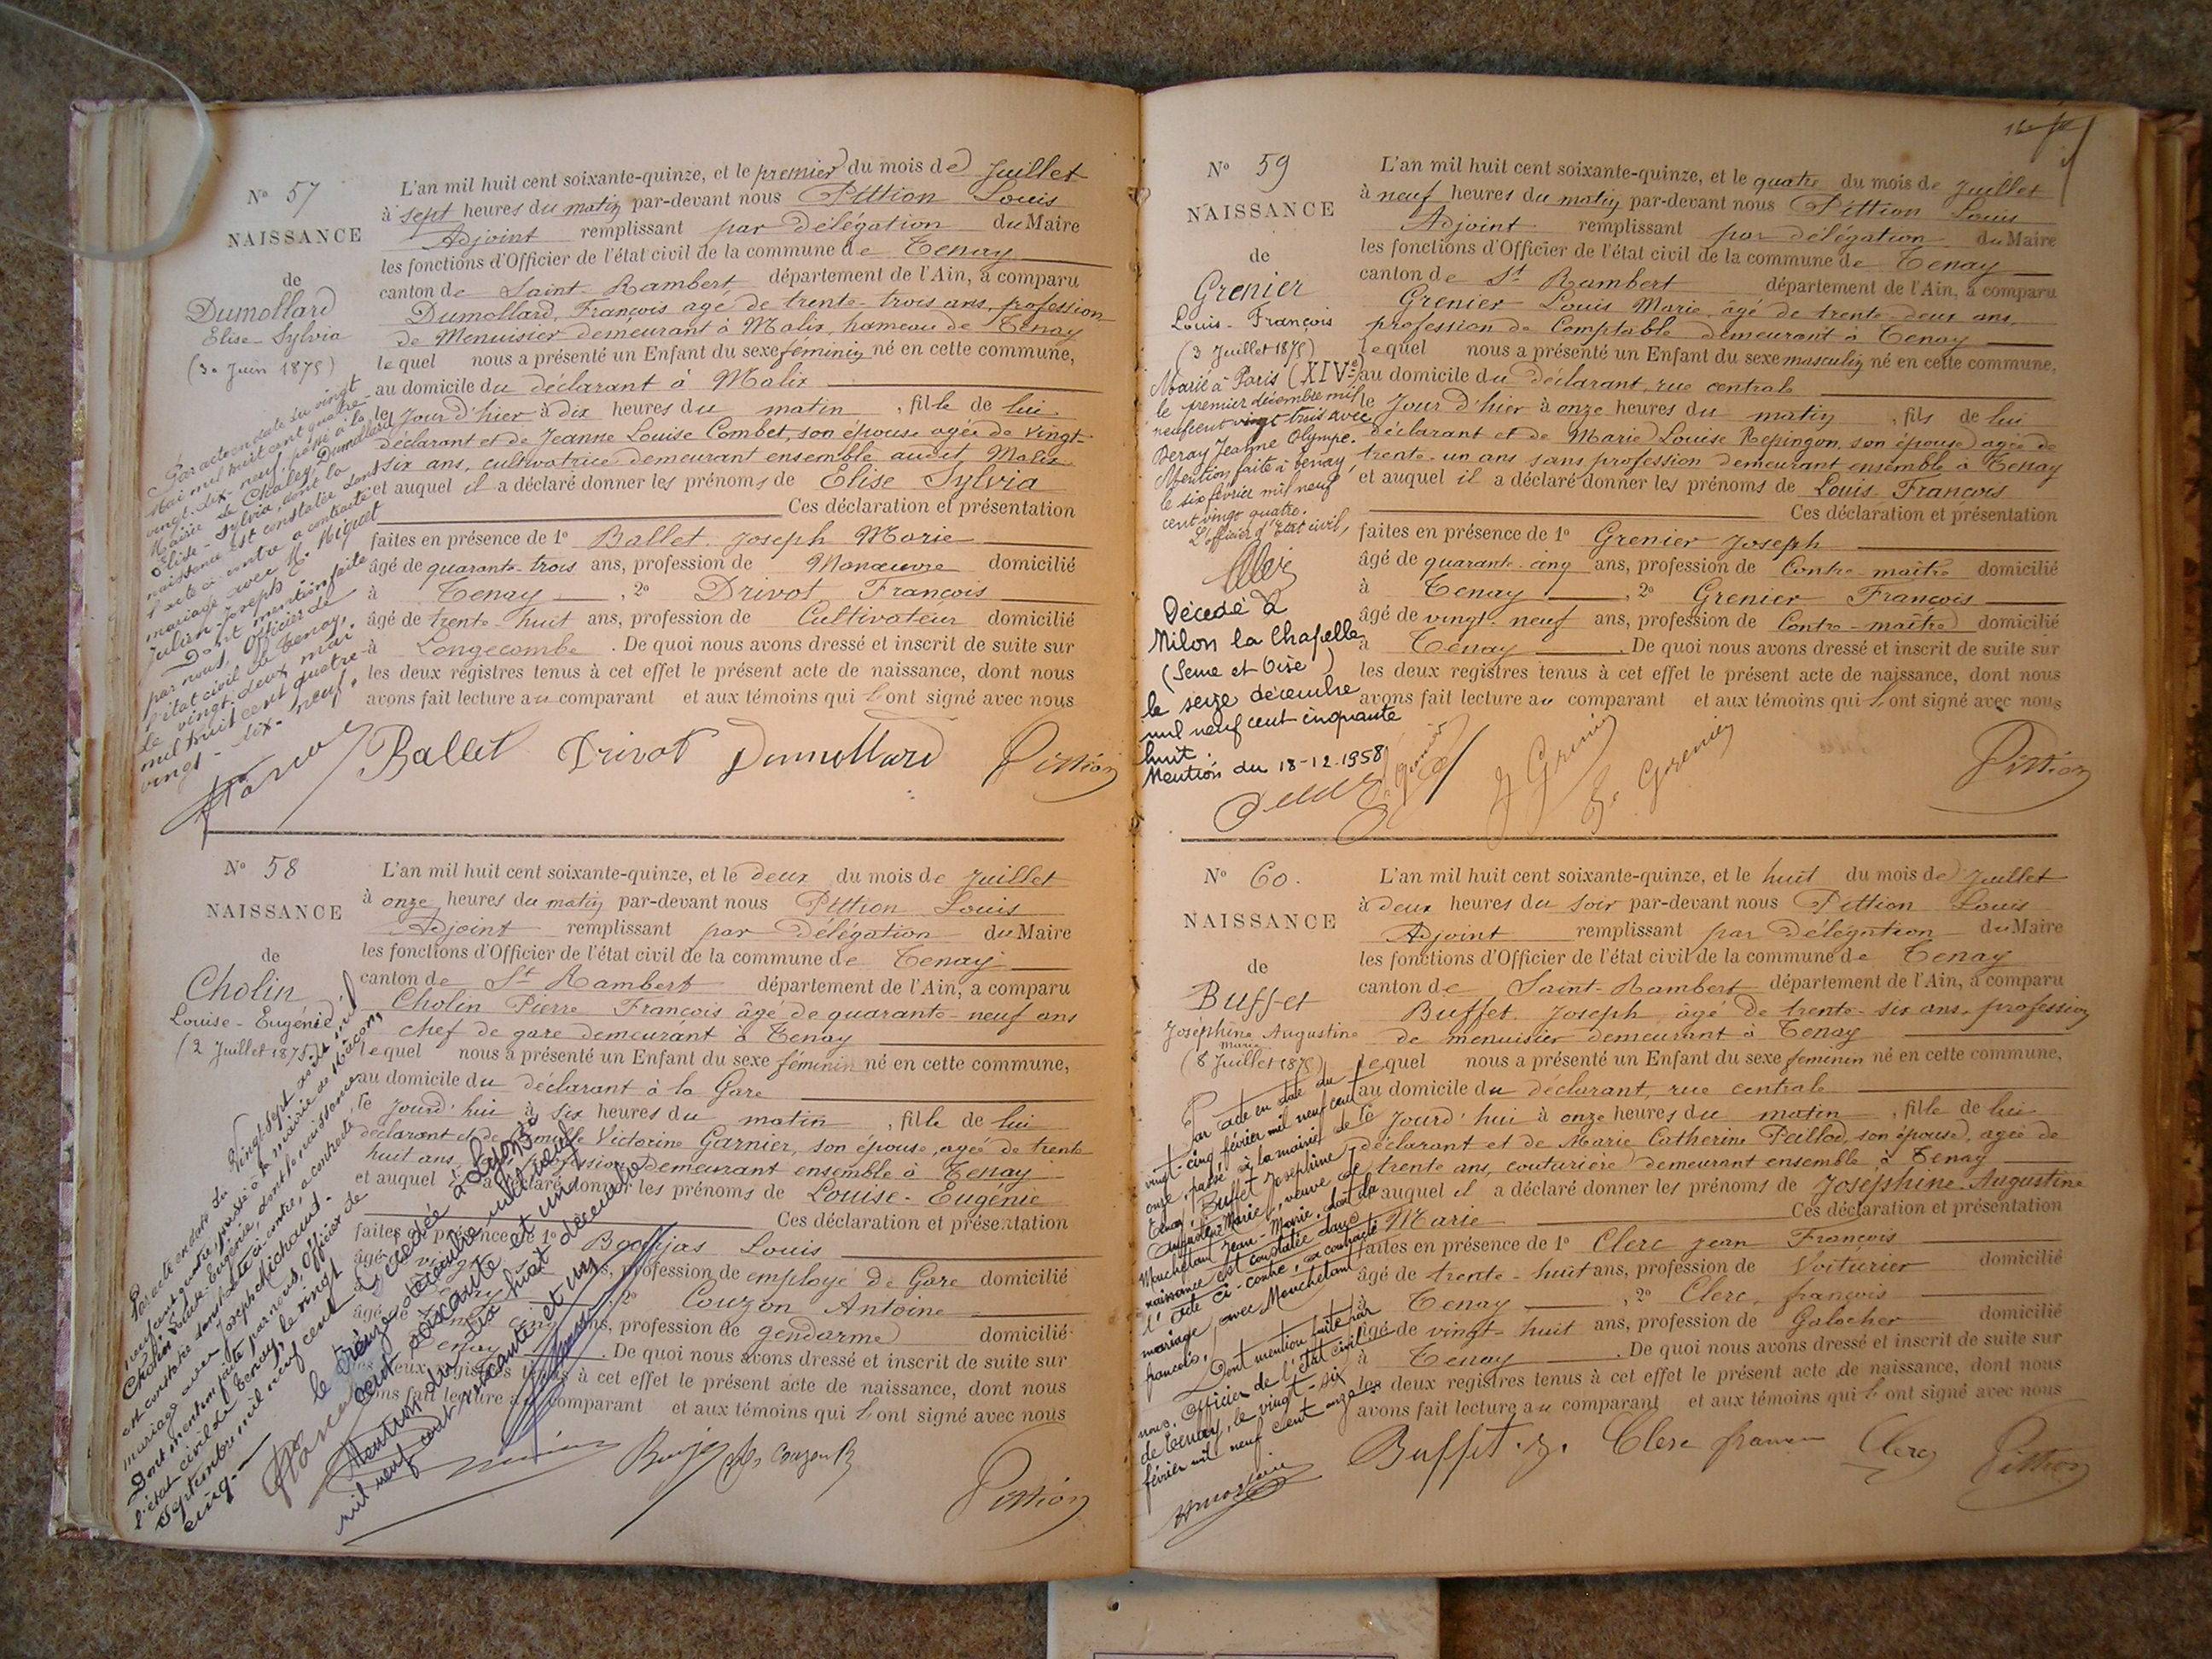 Nº 57
NAISSANCE
de
Dumollard
Elise-Sylvia
(30 Juin 1875)
Par acte en date du vingt
Mai mil huit cent quatre-
vingt-dix-neuf, passé à la
Mairie de Chaley, Dumollard
Elise-Sylvia, dont la
naissance est constatée dans
l'acte ci-contre a contracté
mariage avec M. Miguet
Julien-Joseph
Dont mention faite
par nous, Officier de
l'état civil de Tenay,
le vingt-deux mai
mil huit cent quatre-
vingt-dix-neuf.
L'an mil huit cent soixante-quinze, et le premier du mois de Juillet
à sept heures du matin par-devant nous Pittion Louis
Adjoint remplissant par délégation du Maire
les fonctions d'Officier de l'état civil de la commune de Tenay
canton de Saint Rambert département de l'Ain, a comparu
Dumollard, François agé de trente-trois ans, profession
de Menuisier demeurant à Malix, hameau de Tenay
lequel nous a présenté un Enfant du sexe féminin né en cette commune,
au domicile du déclarant à Malix
le Jour d'hier à dix heures du matin, fille de lui
déclarant et de Jeanne Louise Combet, son épouse agée de vingt-
six ans, cultivatrice demeurant ensemble audit Malix
et auquel il a déclaré donner les prénoms de Elise Sylvia
Ces déclaration et présentation
faites en présence de 1º Ballet Joseph Marie
âgé de quarante-trois ans, profession de Manœuvre domicilié
à Tenay, 2º Drivot François
âgé de trente-huit ans, profession de Cultivateur domicilié
à Longecombe. De quoi nous avons dressé et inscrit de suite sur
les deux registres tenus à cet effet le présent acte de naissance, dont nous
avons fait lecture au comparant et aux témoins qui l'ont signé avec nous
Ballet Drivot Dumollard Pittion
Nº 58
NAISSANCE
de
Cholin
Louise-Eugénie
(2 Juillet 1875)
Par acte en date du Vingt sept août mil
neuf cent quatre, passé à la mairie de Mâcon,
Cholin Louise-Eugénie, dont la naissance
est constatée dans l'acte ci-contre, a contracté
mariage avec Joseph Michaud.
Dont mention faite par nous, Officier de
l'état civil de Tenay, le vingt
Septembre mil neuf cent
cinq.
Décédée à Lyon 3e
le treize décembre mil neuf
cent soixante et un
Mention du dix huit décembre
mil neuf cent soixante et un
L'an mil huit cent soixante-quinze, et le deux du mois de Juillet
à onze heures du matin par-devant nous Pittion Louis
Adjoint remplissant par délégation du Maire
les fonctions d'Officier de l'état civil de la commune de Tenay
canton de St Rambert département de l'Ain, a comparu
Cholin Pierre François âgé de quarante-neuf ans
chef de gare demeurant à Tenay
lequel nous a présenté un Enfant du sexe féminin né en cette commune,
au domicile du déclarant à la Gare
le Jourd'hui à six heures du matin, fille de lui
déclarant et de Camille Victorine Garnier, son épouse, agée de trente
huit ans, profession demeurant ensemble à Tenay
et auquel a déclaré donner les prénoms de Louise-Eugénie
Ces déclaration et présentation
faites en présence de 1º Louis
âgé vingt ans, profession de employé de Gare domicilié
2º Couzon Antoine
âgé de cinq ans, profession de gendarme domicilié
Tenay. De quoi nous avons dressé et inscrit de suite sur
les deux registres tenus à cet effet le présent acte de naissance, dont nous
avons fait lecture au comparant et aux témoins qui l'ont signé avec nous
Couzon Pittion
Nº 59
NAISSANCE
de
Grenier
Louis-François
(3 Juillet 1875)
Marié à Paris (XIVe)
le premier décembre mil
neuf cent vingt trois avec
Deray Jeanne Olympe.
Mention faite à Tenay,
le six février mil neuf
cent vingt quatre.
L'officier d'Etat civil,
Décédé à
Milon la Chapelle
(Seine et Oise)
le seize décembre
mil neuf cent cinquante
huit.
Mention du 18-12-1958
L'an mil huit cent soixante-quinze, et le quatre du mois de Juillet
à neuf heures du matin par-devant nous Pittion Louis
Adjoint remplissant par délégation du Maire
les fonctions d'Officier de l'état civil de la commune de Tenay
canton de St Rambert département de l'Ain, a comparu
Grenier Louis Marie, âgé de trente-deux ans,
profession de Comptable demeurant à Tenay
lequel nous a présenté un Enfant du sexe masculin né en cette commune,
au domicile du déclarant, rue centrale
le Jour d'hier à onze heures du matin, fils de lui
déclarant et de Marie Louise Repingon, son épouse agée de
trente-un ans sans profession demeurant ensemble à Tenay
et auquel il a déclaré donner les prénoms de Louis François
Ces déclaration et présentation
faites en présence de 1º Grenier Joseph
âgé de quarante-cinq ans, profession de Contre-maître domicilié
à Tenay, 2º Grenier François
âgé de vingt-neuf ans, profession de Contre-maître domicilié
à Tenay. De quoi nous avons dressé et inscrit de suite sur
les deux registres tenus à cet effet le présent acte de naissance, dont nous
avons fait lecture au comparant et aux témoins qui l'ont signé avec nous
Grenier J Grenier F. Grenier Pittion
Nº 60.
NAISSANCE
de
Buffet
Joséphine Augustine
Marie
(8 Juillet 1875)
Par acte en date du
vingt-cinq février mil neuf cent
onze, passé à la mairie de
Tenay, Buffet Joséphine
Augustine Marie, veuve de
Mouchetant Jean-Marie, dont la
naissance est constatée dans
l'acte ci-contre, a contracté
mariage avec Mouchetant
François,
Dont mention faite par
nous, Officier de l'Etat civil
de Tenay, le vingt-six
février mil neuf cent onze
L'an mil huit cent soixante-quinze, et le huit du mois de Juillet
à deux heures du soir par-devant nous Pittion Louis
Adjoint remplissant par délégation du Maire
les fonctions d'Officier de l'état civil de la commune de Tenay
canton de Saint-Rambert département de l'Ain, a comparu
Buffet Joseph âgé de trente-six ans, profession
de menuisier demeurant à Tenay
lequel nous a présenté un Enfant du sexe féminin né en cette commune,
au domicile du déclarant, rue centrale
le Jourd'hui à onze heures du matin, fille de lui
déclarant et de Marie Catherine Paillod, son épouse, agée de
trente ans, couturière demeurant ensemble à Tenay
auquel il a déclaré donner les prénoms de Joséphine-Augustine
Marie Ces déclaration et présentation
faites en présence de 1º Clerc Jean François
âgé de trente-huit ans, profession de Voiturier domicilié
à Tenay, 2º Clerc, françois
âgé de vingt-huit ans, profession de Galocher domicilié
à Tenay. De quoi nous avons dressé et inscrit de suite sur
les deux registres tenus à cet effet le présent acte de naissance, dont nous
avons fait lecture au comparant et aux témoins qui l'ont signé avec nous
Buffet. J. Clerc françois Clerc Pittion